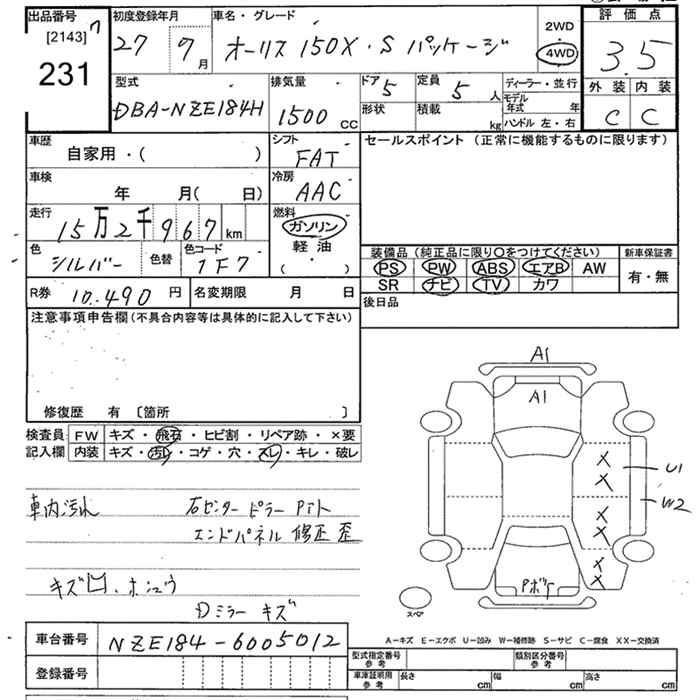 出品番号 初度登録年月 車名・グレード 2WD 評価点
[2143] 7
231
27 9月 オーリス 150X・S パッケージ 4WD 3.5
型式 排気量 ドア 定員 ディーラー・並行 外装 内装
DBA-NZE184H 1500 CC 5 5人 モデル年式 年 C C
形状 積載 kg ハンドル 左・右
車歴 シフト セールスポイント(正常に機能するものに限ります)
自家用・( ) FAT
車検 冷房
年 月( 日) AAC
走行 燃料
15万2千967km ガソリン
軽油
( ・ )
色 色替 色コード
シルバー 1F7
装備品(純正品に限り○をつけてください) 新車保証書
PS PW ABS エアB AW 有・無
SR ナビ TV カワ
R券 10.490円 名変期限 月 日 後日品
注意事項申告欄(不具合内容等は具体的に記入して下さい)
修復歴 有 〔箇所 〕
検査員記入欄 FW キズ・飛石・ヒビ割・リペア跡・×要
内装 キズ・汚レ・コゲ・穴・スレ・キレ・破レ
車内汚れ 右センターピラー
エンドパネル 修正 歪
キズ凹、ホシュウ
Dミラー キズ
A1
A1
U1
W2
スペア
A-キズ E-エクボ U-凹み W-補修跡 S-サビ C-腐食 XX-交換済
車台番号 NZE184-6005012
登録番号
型式指定番号 参考 類別区分番号 参考
車庫証明用 参考 長さ cm 幅 cm 高さ cm